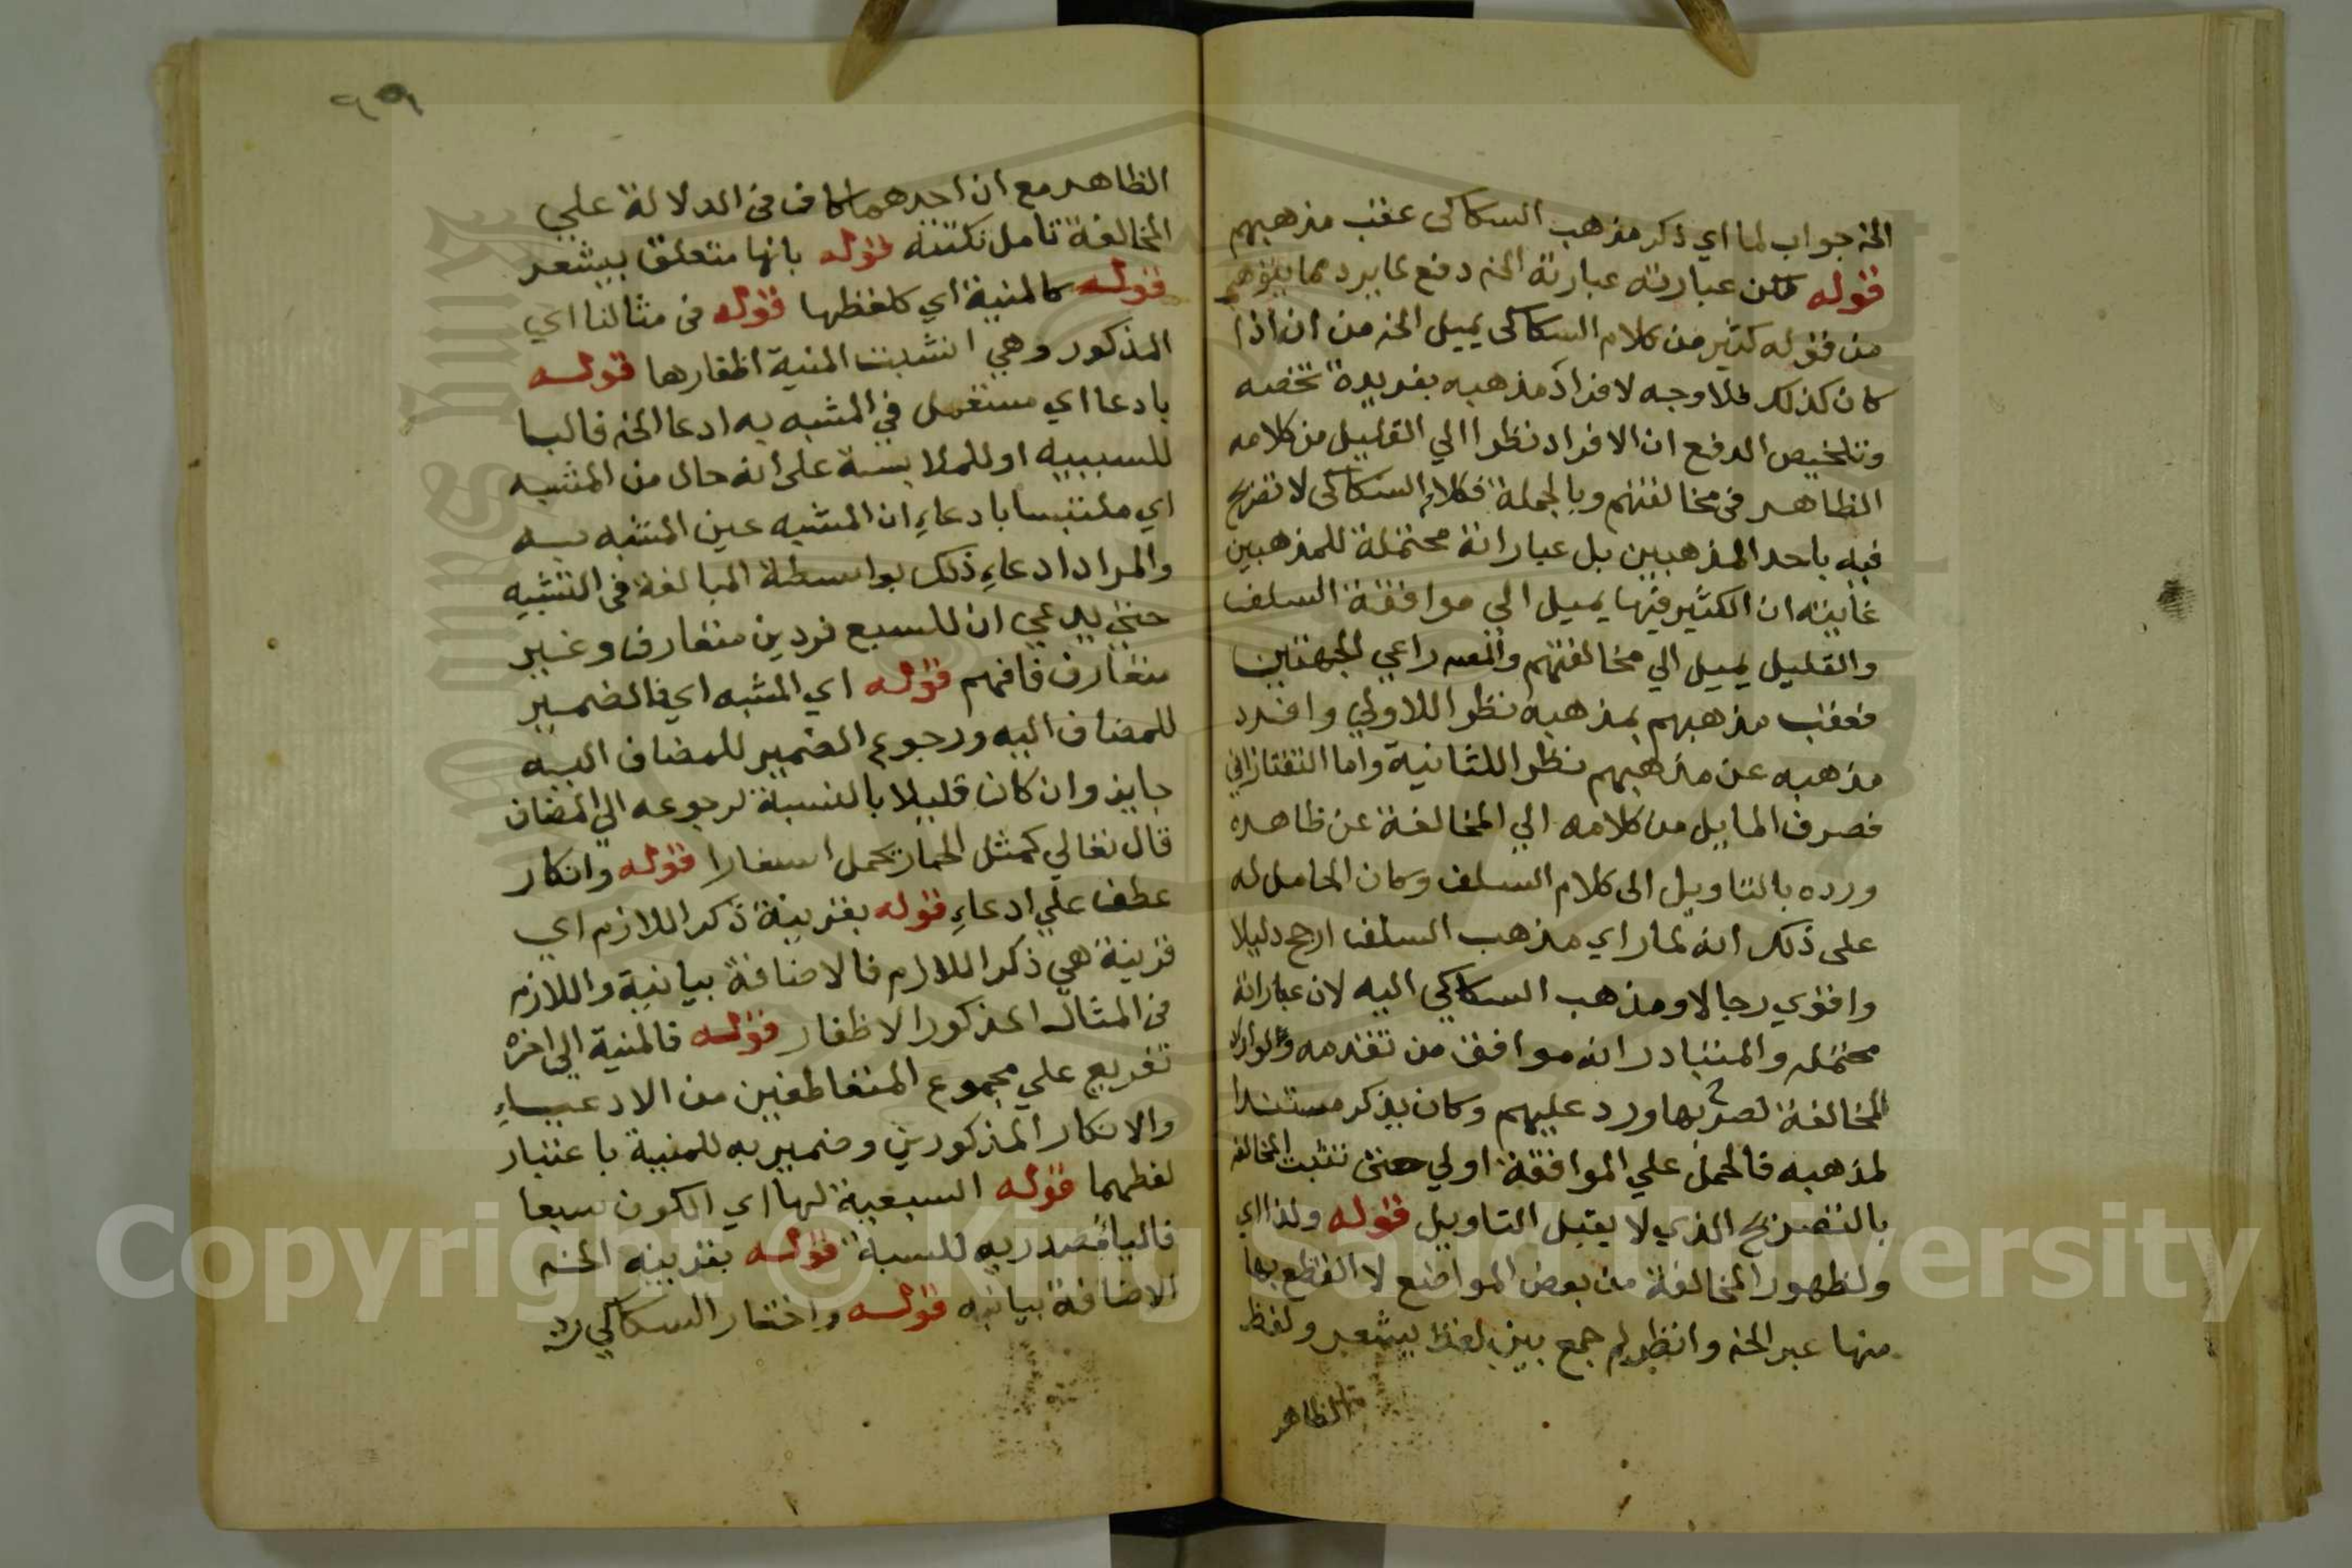 الخ جواب لما اي ذكر مذهب السكاكى عقب مذهبهم
قوله لكن عبارته عبارة الخ دفع لما يرد مما يتوهم
من قوله كثير من كلام السكاكى يميل الخ من ان اذا
كان كذلك فلا وجه لافراد مذهبه بفريدة تخصه
وتلخيص الدفع ان الافراد نظرا الي القليل من كلامه
الظاهر فى مخالفتهم وبالجملة فكلام السكاكى لا تصريح
فيه باحد المذهبين بل عباراته محتملة للمذهبين
غايته ان الكثير فيها يميل الي موافقة السلف
والقليل يميل الي مخالفتهم والمص راعي الجهتين
فعقب مذهبهم بمذهبه نظرا للاولي وافرد
مذهبه عن مذهبهم نظرا للثانية واما التفتازاني
فصرف المايل من كلامه الي المخالفة عن ظاهره
ورده بالتاويل الى كلام السلف وكان الحامل له
على ذلك انه لما راي مذهب السلف ارجح دليلا
واقوي رجالا ومذهب السكاكي اليه لان عباراته
محتمله والمتبادر انه موافق من تقدمه ولو اراد
المخالفة لصرح بها ورد عليهم وكان يذكر مستندا
لمذهبه فالحمل علي الموافقة اولي حتى تثبت المخالفة
بالتصريح الذي لا يقبل التاويل قوله ولذا اي
ولظهور المخالفة من بعض المواضع لا القطع بها
منها عبر الخ وانظر لم جمع بين لفظ يشعر ولفظ
الظاهر
الظاهر مع ان احدهما كاف فى الدلالة علي
المخالفة تامل نكتته قوله بانها متعلق بيشعر
قوله كالمنية اي كلفظها قوله فى مثالنا اي
المذكور وهي انشبت المنية اظفارها قوله
بادعا اي مستعمل في المشبه به ادعا الخ فالبا
للسببيه او للملابسة على انه حال من المشبه
اي ملتبسا بادعاءِ ان المشبه عين المشبه به
والمراد ادعاءِ ذلك بواسطة المبالغة فى التشبيه
حتي يدعي ان للسبع فردين متعارف وغير
متعارف فافهم قوله اي المشبه اي فالضمير
للمضاف اليه ورجوع الضمير للمضاف اليه
جايز وان كان قليلا بالنسبة لرجوعه الي المضاف
قال تعالي كمثل الحمار يحمل اسفارا قوله وانكار
عطف علي ادعاءِ قوله بقرينة ذكر اللازم اي
قرينة هي ذكر اللازم فالاضافة بيانية واللازم
فى المثال المذكور الاظفار قوله فالمنية الي اخره
تفريع علي مجموع المتعاطفين من الادعاءِ
والانكار المذكورين وضمير به للمنية باعتبار
لفظها قوله السبعية لها اي الكون سبعا
فاليا مصدريه للسبة قوله بقرينه الخ
الاضافة بيانيه قوله واختار السكاكي رد